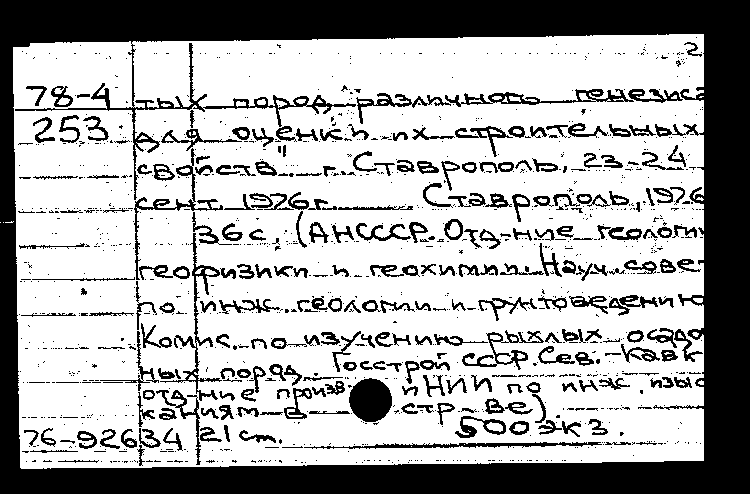 2
78-4 тых пород различного генезиса
253 для оценки их строительных
свойств" г. Ставрополь, 23-24
сент. 1976г. Ставрополь, 1976
36с. (АНСССР. Отд-ние геологии
геофизики и геохимии. Науч. сове
по инж. геологии и грунтоведению
Комис. по изучению рыхлых осадо
ных пород. Госстрой СССР. Сев.-Кавк
отд-ние произв. и НИИ по инж. изыс
каниям в стр-ве)
76-92634 21 cm. 500 экз.